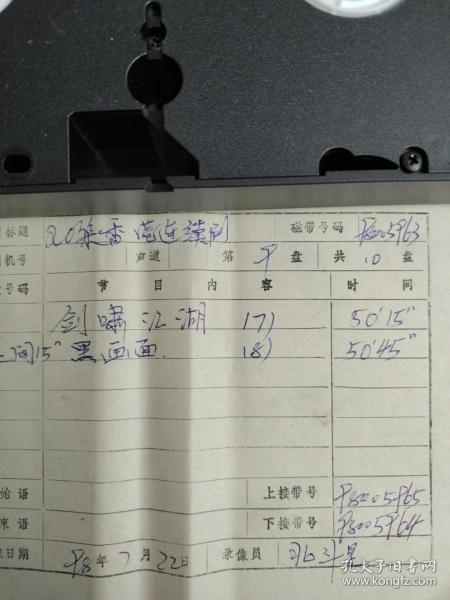 标题 20集香港连续剧 磁带号码
机号 声道 第 9 盘 共 10 盘
号码 节目内容 时间
剑啸江湖 17) 50'15"
间15"黑画面 18) 50'45"
始语 上接带号
束语 下接带号
日期 98年7月22日 录像员
孔夫子旧书网